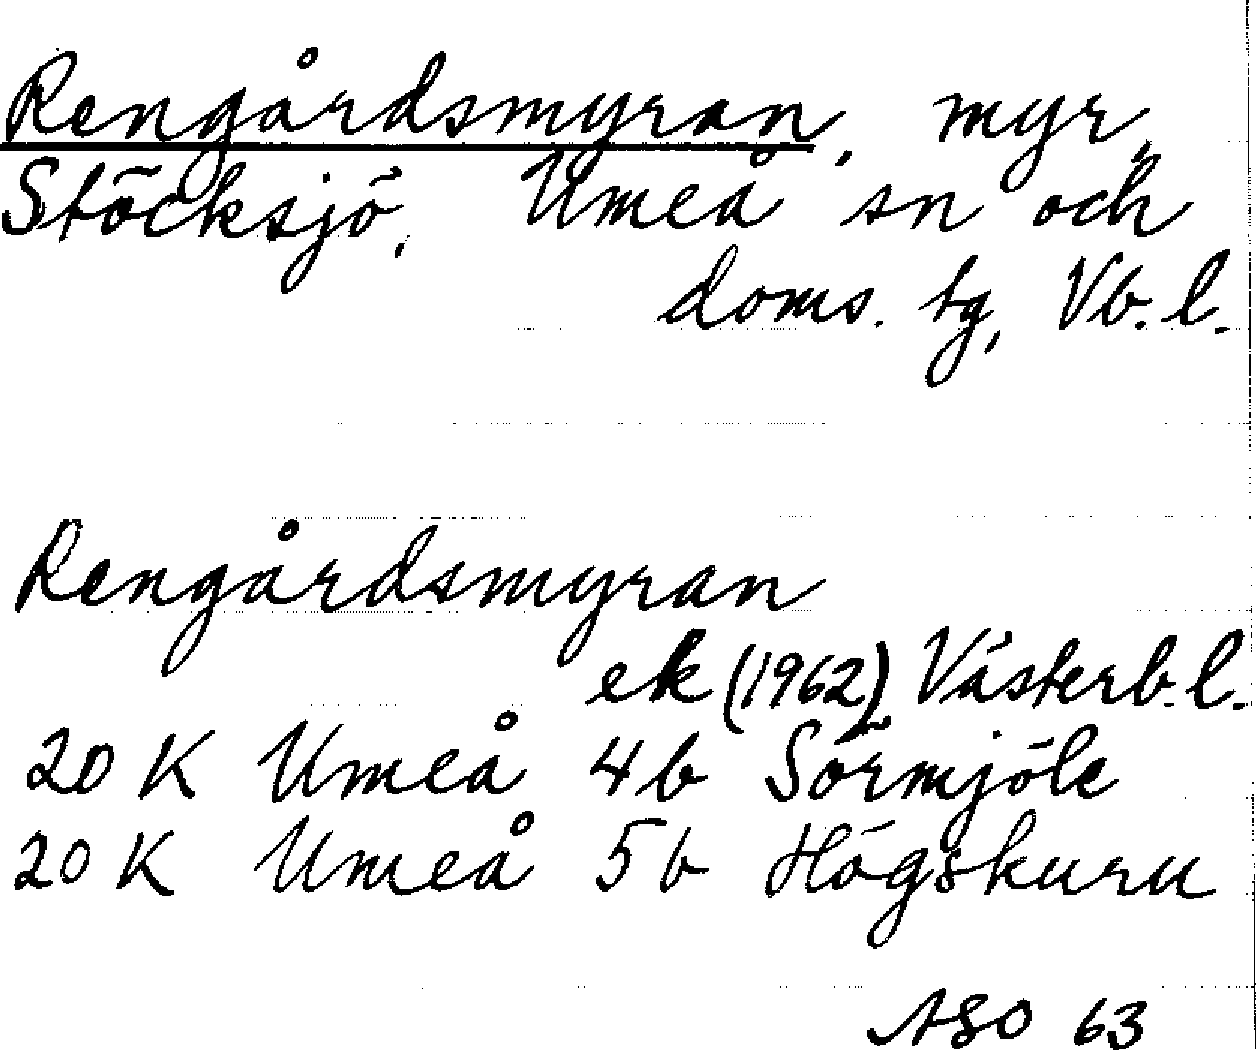 Rengårdsmyran, myr,
Stöcksjö, Umeå sn och
doms. tg, Vb. l.
Rengårdsmyran
ek (1962) Västerb. l.
20 K Umeå 4b Sörmjöle
20 K Umeå 5b Högskuru
ASO 63